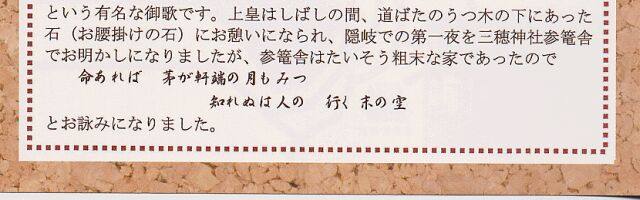 という有名な御歌です。上皇はしばしの間、道ばたのうつ木の下にあった
石（お腰掛けの石）にお憩いになられ、隠岐での第一夜を三穂神社参篭舎
でお明かしになりましたが、参篭舎はたいそう粗末な家であったので
命あれば　茅が軒端の月もみつ
知れぬは人の　行く末の空
とお詠みになりました。